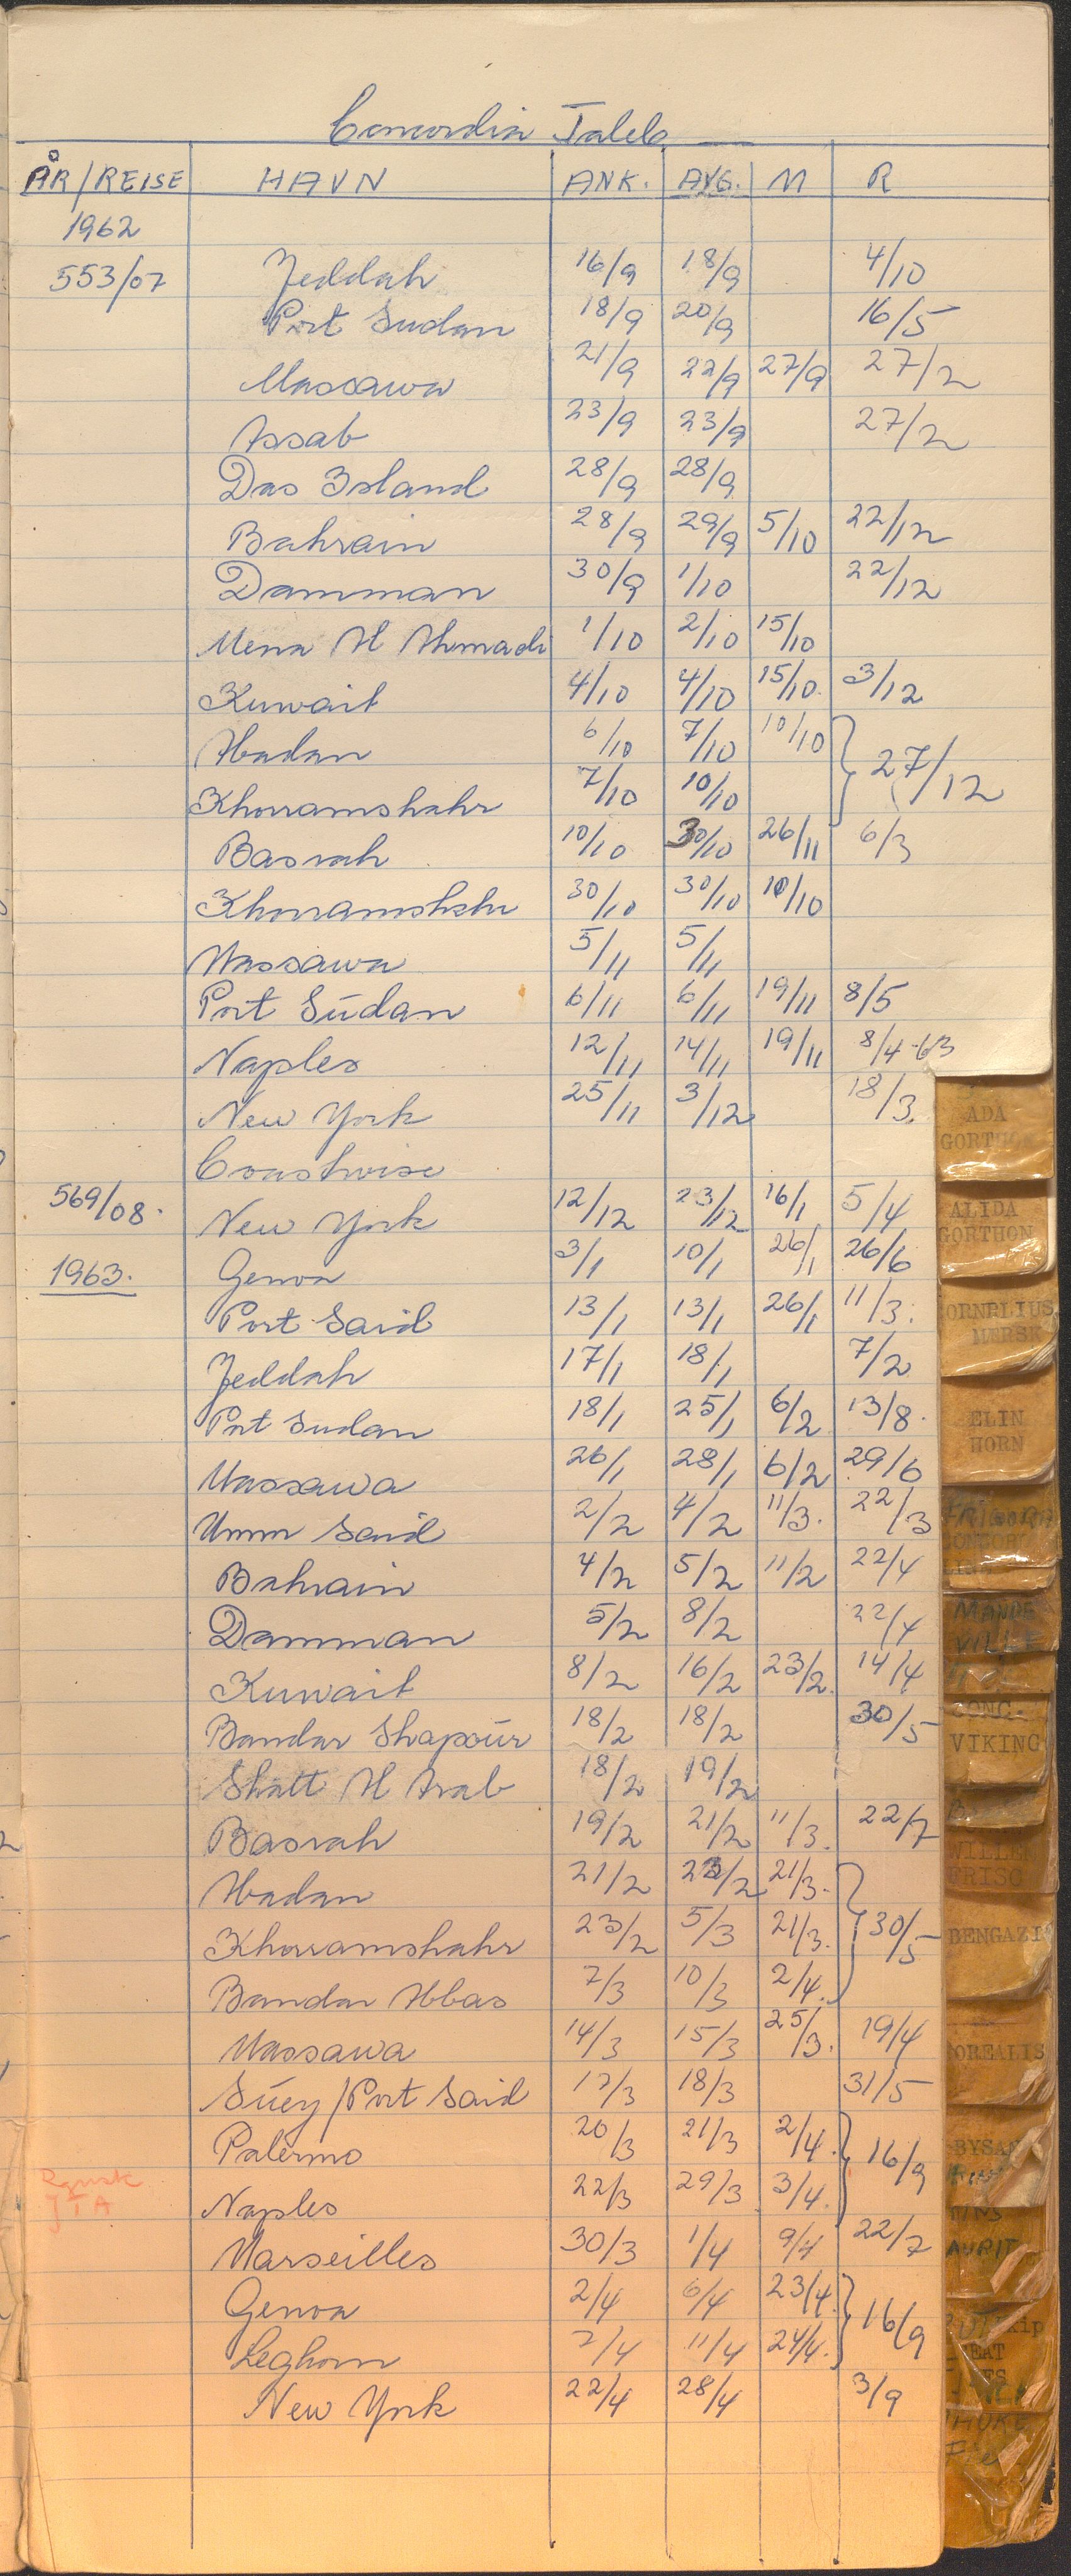 Concordia Taleb
ÅR/REISE HAVN ANK. AVG. M R
1962
553/07 Jeddah 16/9 18/9 4/10
Port Sudan 18/9 20/9 16/5
Massawa 21/9 22/9 27/9 27/2
Assab 23/9 23/9 27/2
Das Island 28/9 28/9
Bahrain 28/9 29/9 5/10 22/12
Damman 30/9 1/10 22/12
Mena Al Ahmadi 1/10 2/10 15/10
Kuwait 4/10 4/10 15/10. 3/12
Abadan 6/10 7/10 10/10
Khorramshahr 7/10 10/10 27/12
Basrah 10/10 30/10 26/11 6/3
Khorramshshr 30/10 30/10 10/10
Massawa 5/11 5/11
Port Sudan 6/11 6/11 19/11 8/5
Naples 12/11 14/11 19/11 8/4-63
New York 25/11 3/12 18/3.
Coastwise
569/08. New York 12/12 23/12 16/1 5/4
1963. Genoa 3/1 10/1 26/1 26/6
Port Said 13/1 13/1 26/1 11/3.
Jeddah 17/1 18/1 7/2
Port Sudan 18/1 25/1 6/2 13/8.
Massawa 26/1 28/1 6/2 29/6
Umm Said 2/2 4/2 11/3. 22/3
Bahrain 4/2 5/2 11/2 22/4
Damman 5/2 8/2 22/4
Kuwait 8/2 16/2 23/2. 14/4
Bandar Shapour 18/2 18/2 30/5
Shatt Al Arab 18/2 19/2
Basrah 19/2 21/2 11/3. 22/7
Abadan 21/2 23/2 21/3.
Khorramshahr 23/2 5/3 21/3. 30/5
Bandar Abbas 7/3 10/3 2/4.
Massawa 14/3 15/3 25/3. 19/4
Suez/Port Said 17/3 18/3 31/5
Palermo 20/3 21/3 2/4. 16/9
Naples 22/3 29/3 3/4.
JTA
Marseilles 30/3 1/4 9/4 22/7
Genoa 2/4 6/4 23/4
Leghorn 7/4 11/4 24/4. 16/9
New York 22/4 28/4 3/9
ADA
GORTHON
ALIDA
GORTHON
ORNELIUS
MERSK
ELIN
HORN
MANDE
VILLE
CONC.
VIKING
WILLEM
FRISO
BENGAZI
OREALIS